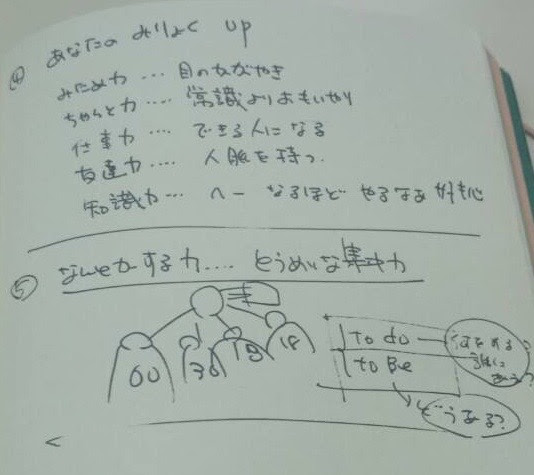 ④ あなたの みりょく up
みため力 … 目のかがやき
ちゃんと力 …. 常識よりおもいやり
仕事力 …. できる人になる
友達力 …. 人脈を持つ.
知識力 … へー なるほど やるなあ 好奇心
⑤ なんとかする力 …. とうめいな集中力
60 30 15 15
To do
to Be
どうある?